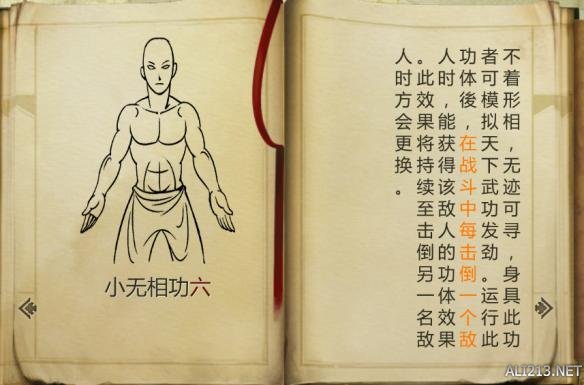 不着形相，无迹可寻，身具此功
者可模拟天下武功发劲。运行此
功体後，在战斗中每击倒一个敌
人时，能获得该敌人的功体效果
。此效果将持续至击倒另一名敌
人时方会更换。
小无相功六
ALI213.NET